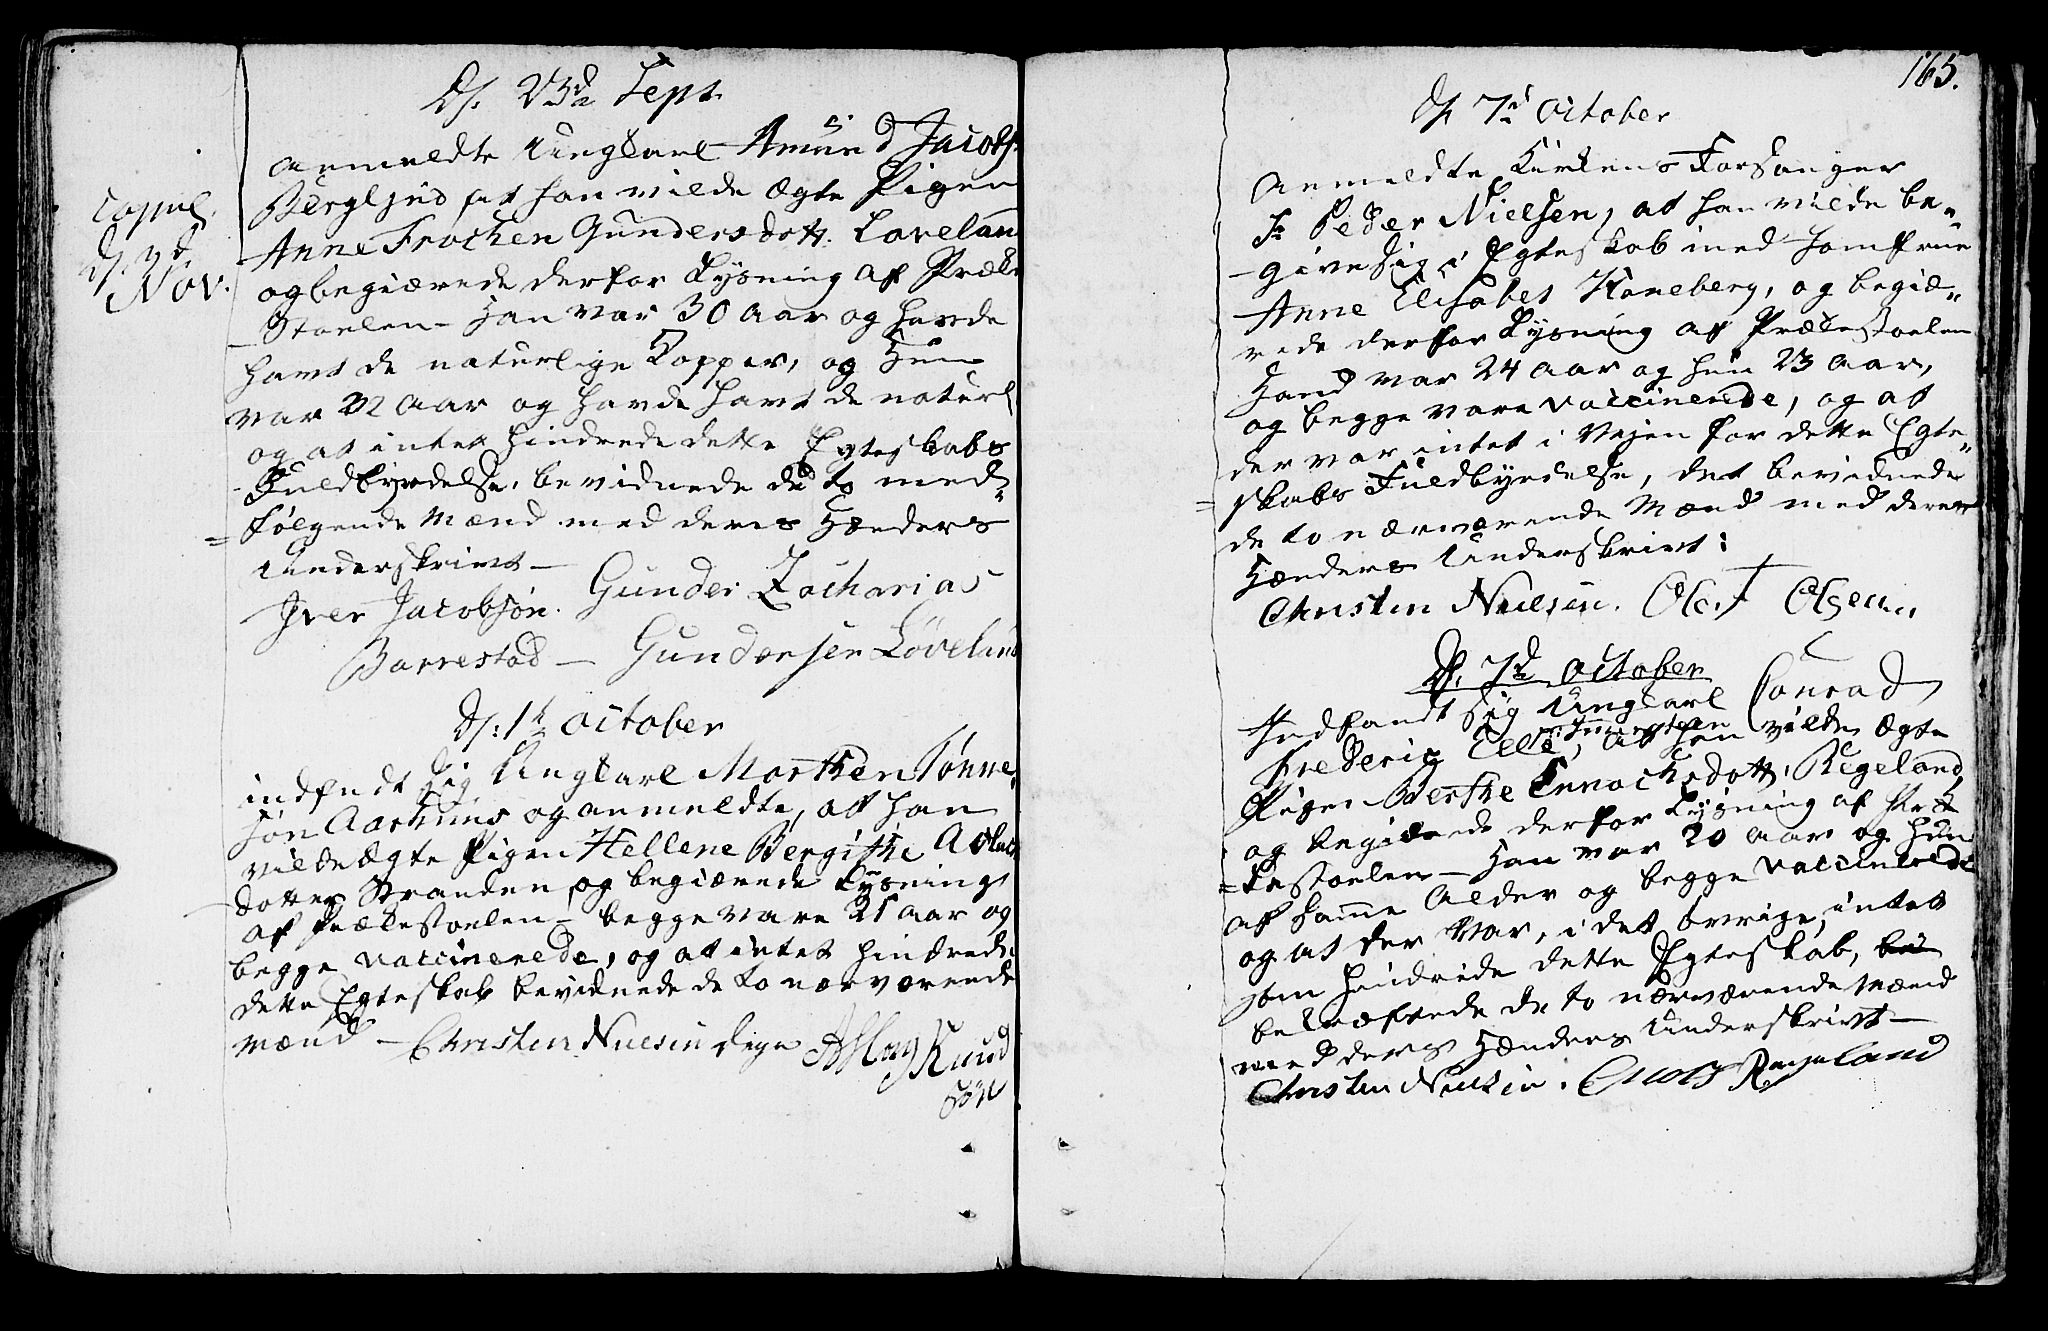 D: 23d Sept.
anmeldte Ungkarl Amund Jacobs:
Bergljud at han vilde ægte Pigen
Anne Frochen Gundersdott. Løveland
og begiærede derfor Lysning af Præke
Stoelen – Han var 30 Aar og havde
havt de naturlige Kopper, og Hun
var 22 Aar og havde havt de naturl
og at intet hindrede dette Egteskabs
Fuldbyrdelse, bevidnede de to med„
følgende Mænd med deres Hænders
Underskrivt –
Iver Jacobsøn. Gunder Zacharias
Barrestad — Gundersen Løveland
Copul.
D: d
Nov.
D: 1t October
indfandt sig Ungkarl Morthen Tønne„
søn Aarhuus og anmeldte, at han
vilde ægte Pigen Hellene Bergithe Aslacs
dotter Stranden, og begiærede Lysning
af Prækestoelen – begge vare 21 Aar og
begge vaccinerede, og at intet hindrede
dette Egteskab bevidnede de to nærværende
Mænd – Christen Nielsen Aslag Knud
søn
165.
D: 7d October
Anmeldte Kirkens Forsanger
Sr Peder Nielsen, at han vilde be„
give sig i Egteskab med Jomfrue
Anne Elisabet Haneberg, og begiæ„
rede derfor Lysning af Prækestoelen
Hand var 24 Aar og hun 23 Aar,
og begge vare vaccinerede, og at
der var intet i Vejen for dette Egte„
skabs Fuldbyrdelse, det bevidnede
de to nærværende Mænd med deres
Hænders Underskrivt:
Christen Nielsen. Oluf Olsen
D: 7d October
Indfandt sig Ungkarl Conrad
Frederic Elle, at han vilde ægte
Pigen Berthe Ennochsdott: Regeland,
og begiærede derfor Lysning af Præ
kestoelen – Han var 20 Aar og hun
af samme Alder og begge vaccinerede
og at der var, i det øvrige, intet
som hindrede dette Egteskab,
bekræftede de to nærværende Mænd
med deres Hænders Underskrivt –
Christen Nielsen. Enoch Regeland